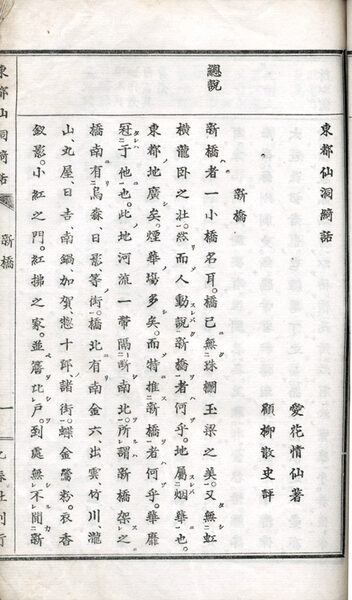 東都仙洞綺話
愛花情仙著
顧柳散史評
新橋
總說
新橋者一小橋名耳。橋已無珠欄玉梁之美。又無虹
橫龍臥之壯。然而人動說新橋者何乎。地屬烟華也。
東都地廣矣。煙華塲多矣。而特推新橋者何乎。華靡
冠于他也。此地河流一帶隔斷南北。所謂新橋架之。
橋南有烏森、日影、等街。橋北有南金六、出雲竹川、瀧
山、丸屋、日吉、南鍋、加賀、惣十郎、諸街。蝶金鶯粉。衣香
釵影。小紅之門。紅拂之家。並簷比戶。到處無不聞新
東都仙洞綺話
新橋
一
九春社刊行